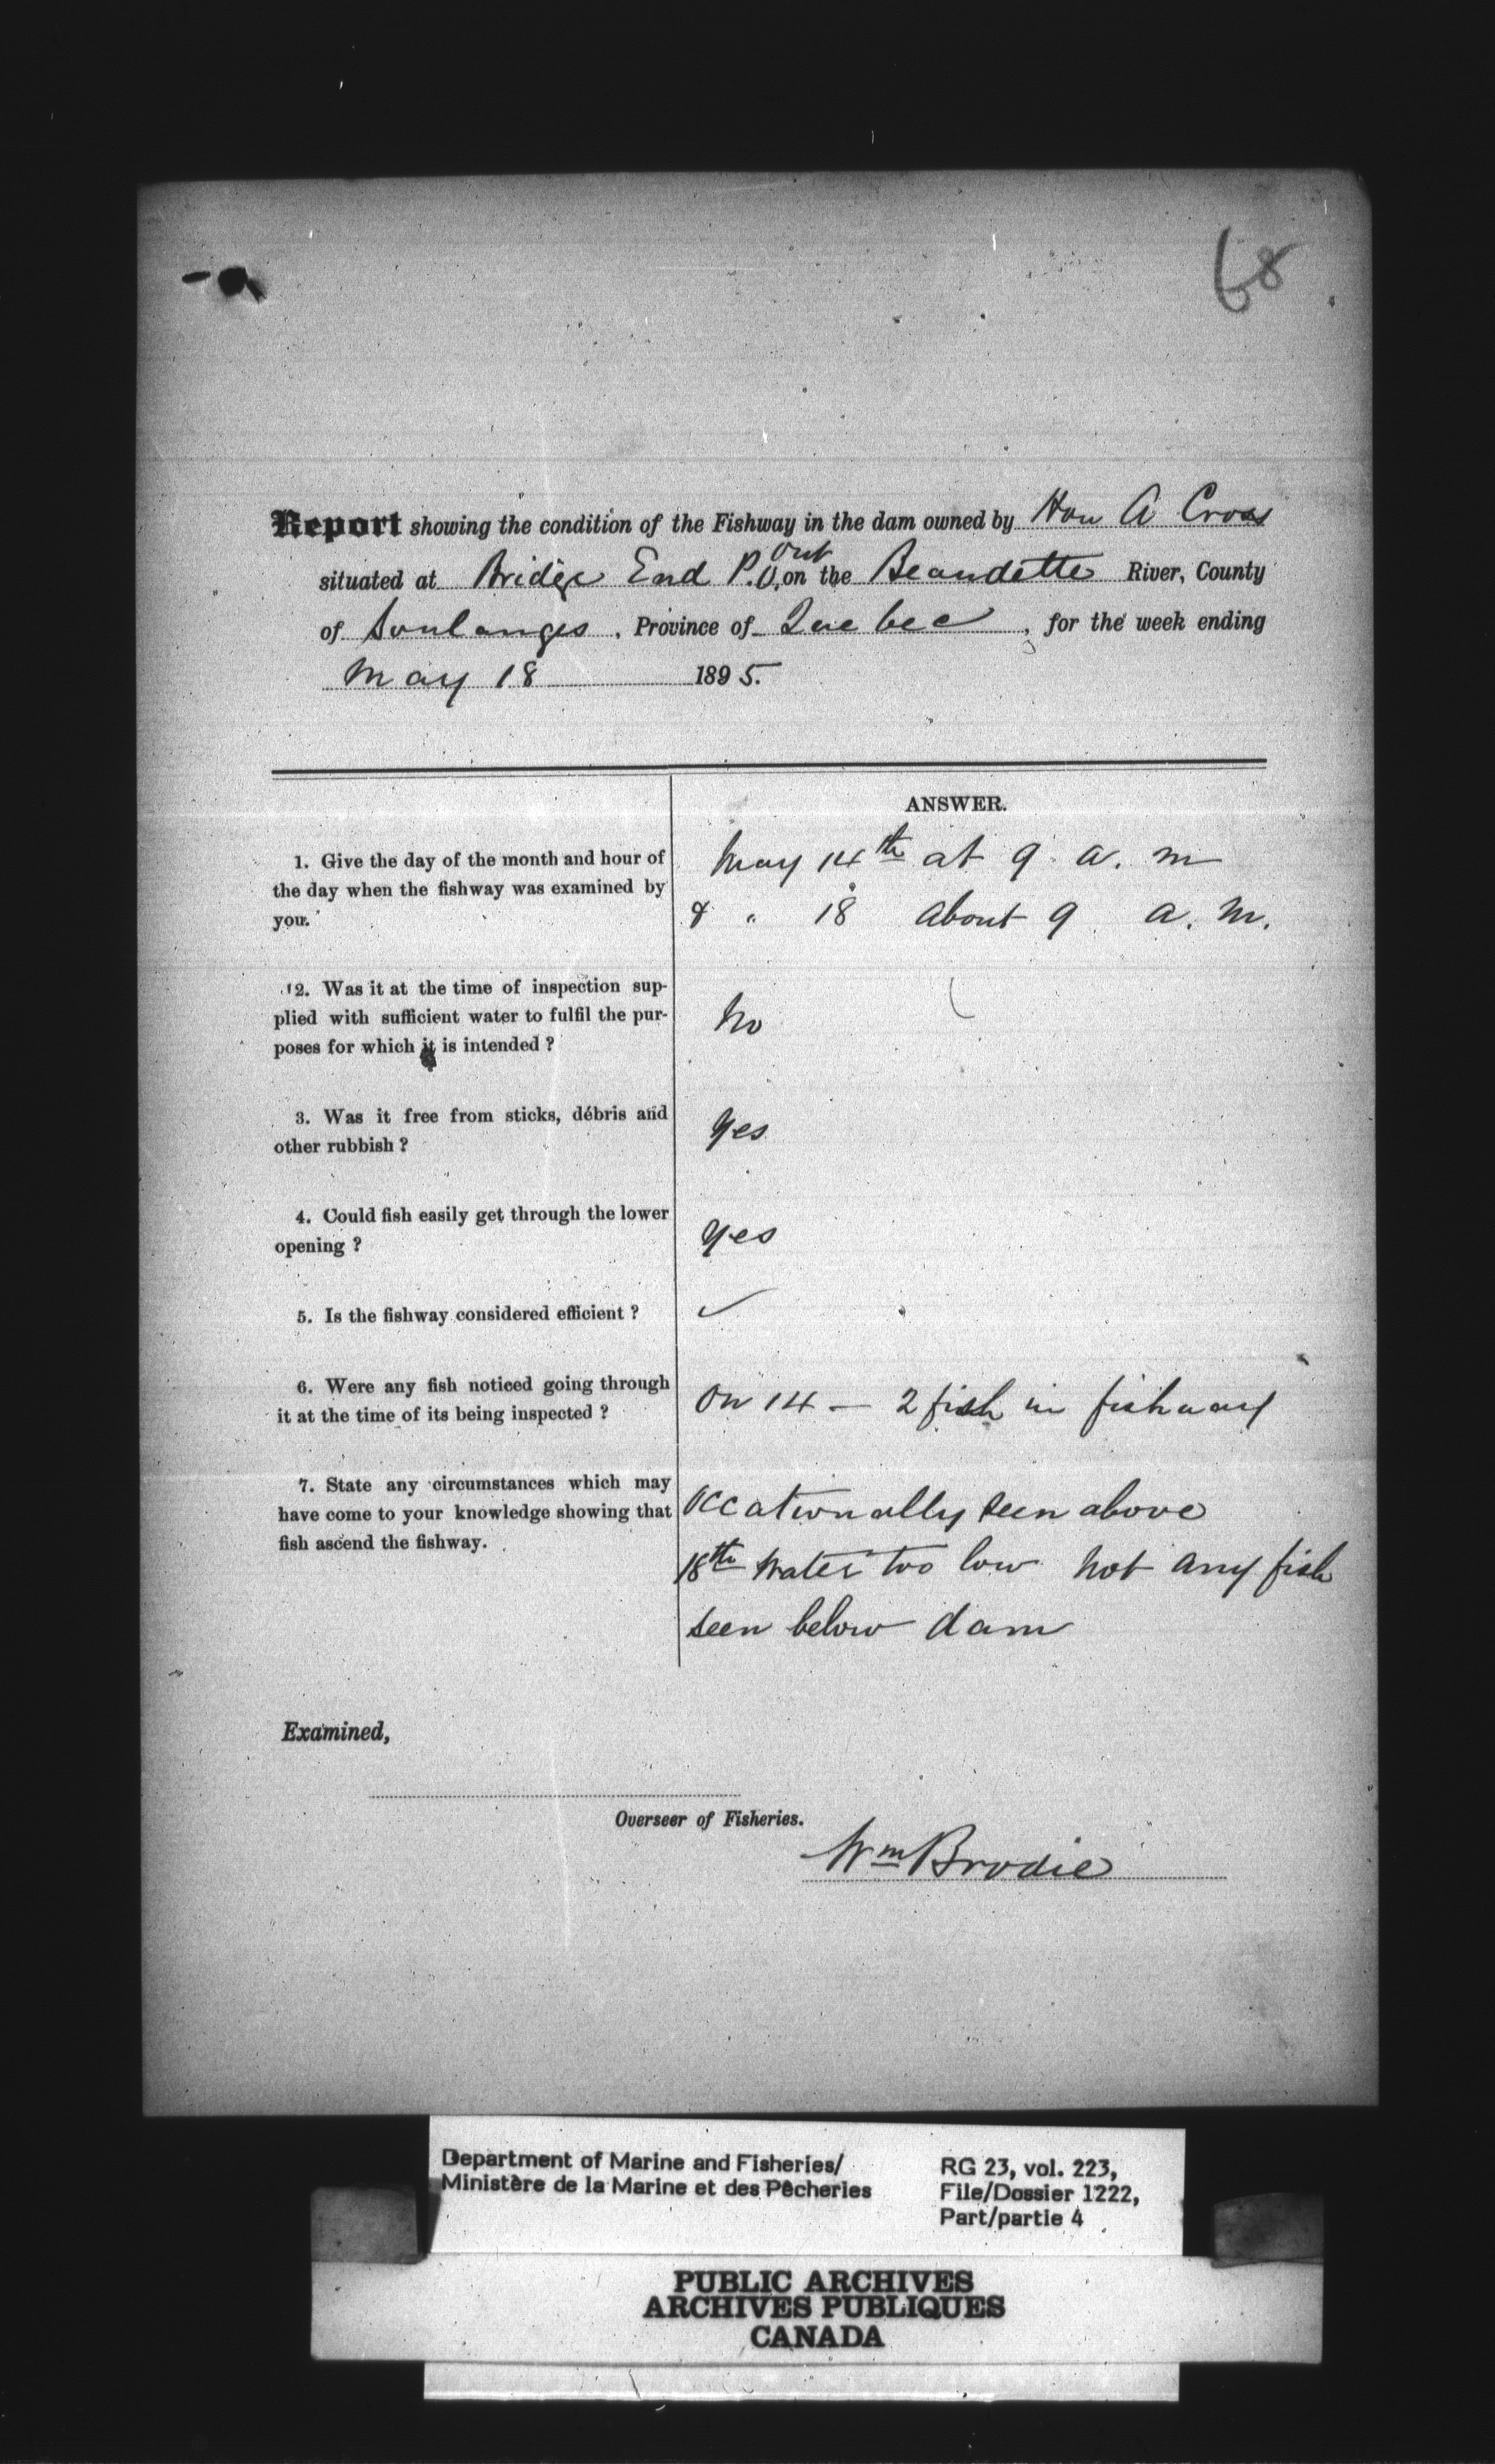 68
Report showing the condition of the Fishway in the dam owned by Hon A Cross
situated at Bridge End P.O, Ont on the Beaudette River, County
of Soulanges, Province of Quebec, for the week ending
May 18 1895.
ANSWER.
1. Give the day of the month and hour of
the day when the fishway was examined by
you.
May 14th at 9 a. m
& " 18 about 9 a. m.
2. Was it at the time of inspection sup-
plied with sufficient water to fulfil the pur-
poses for which it is intended ?
No
3. Was it free from sticks, débris and
other rubbish ?
Yes
4. Could fish easily get through the lower
opening ?
Yes
5. Is the fishway considered efficient ?
✓
6. Were any fish noticed going through
it at the time of its being inspected ?
On 14 — 2 fish in fishway
7. State any circumstances which may
have come to your knowledge showing that
fish ascend the fishway.
Occationally seen above
18th Water too low Not any fish
seen below dam
Examined,
Overseer of Fisheries.
Wm Brodie
Department of Marine and Fisheries/
Ministère de la Marine et des Pêcheries
RG 23, vol. 223,
File/Dossier 1222,
Part/partie 4
PUBLIC ARCHIVES
ARCHIVES PUBLIQUES
CANADA